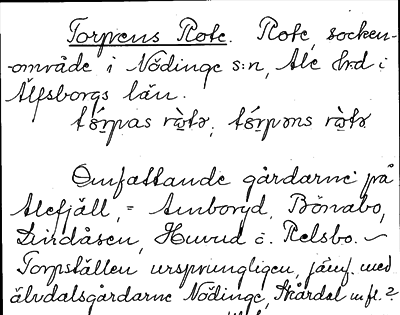 Torpens Rote. Rote, socken-
område i Nödinge s:n, Ale hrd i
Älfsborgs län.
tórpas ròtə, tórpəns ròtə
Omfattande gårdarne på
Alefjäll, = Amboryd, Bönabo,
Dindåsen, Huvud o. Relsbo. –
Torpställen ursprungligen, jämf. med
älvdalsgårdarne Nödinge, Skårdal m fl.?